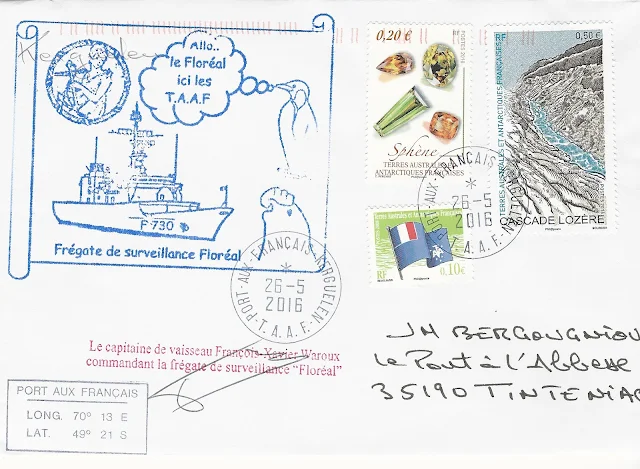 Kerguelen
Allo..
le Floréal
ici les
T.A.A.F
F 730
Frégate de surveillance Floréal
0,20 €
RF
POSTES 2016
Sphène
TERRES AUSTRALES ET
ANTARCTIQUES FRANÇAISES
RF
0,50 €
TERRES AUSTRALES ET ANTARCTIQUES FRANÇAISES
CASCADE LOZÈRE
Terres australes et Antarctiques Françaises
RF
0.10€
PORT-AUX-FRANÇAIS-KERGUELEN
26-5
2016
T.A.A.F.
PORT-AUX-FRANÇAIS-KERGUELEN
26-5
2016
T.A.A.F.
Le capitaine de vaisseau François-Xavier Waroux
commandant la frégate de surveillance "Floréal"
PORT AUX FRANÇAIS
LONG. 70° 13 E
LAT. 49° 21 S
JH BERGOUGNIOU
Le Pont à l'Abbesse
35190 TINTENIAC